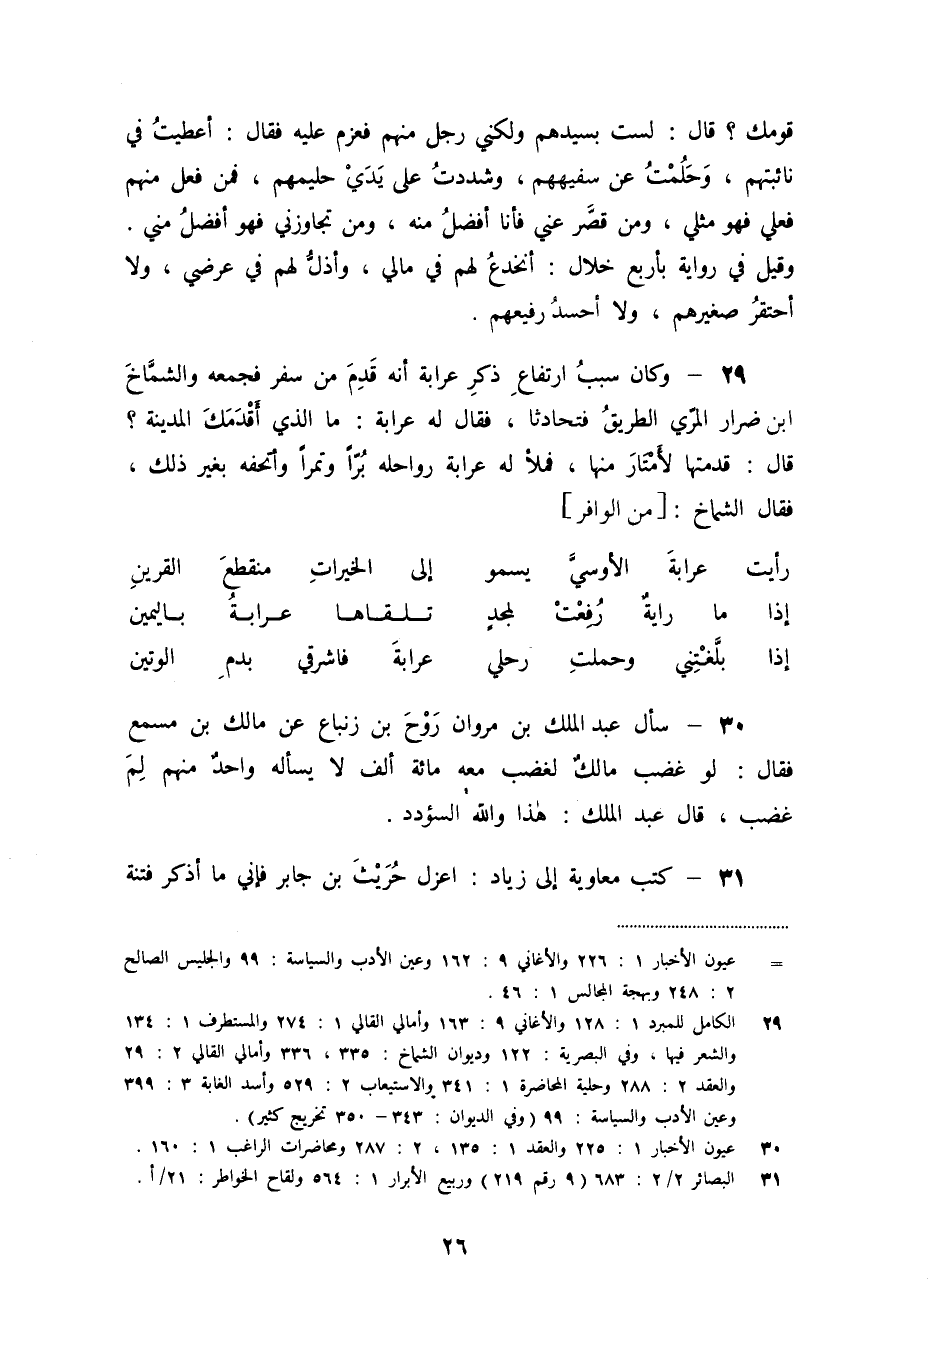 قومك ؟ قال : لست بسيدهم ولكني رجل منهم فعزم عليه فقال : أعطيتُ في
نائبتهم ، وَحَلُمْتُ عن سفيههم ، وشددتُ على يَدَيْ حليمهم ، فمن فعل منهم
فعلي فهو مثلي ، ومن قصَّر عني فأنا أفضلُ منه ، ومن تجاوزني فهو أفضلُ مني .
وقيل في رواية بأربع خلال : أنخدعُ لهم في مالي ، وأذلُّ لهم في عرضي ، ولا
أحتقرُ صغيرهم ، ولا أحسدُ رفيعهم .
٢٩ – وكان سببُ ارتفاعِ ذكرِ عرابة أنه قَدِمَ من سفر فجمعه والشمَّاخَ
ابن ضرار المرّي الطريقُ فتحادثا ، فقال له عرابة : ما الذي أَقْدَمَكَ المدينة ؟
قال : قدمتها لأَمْتَارَ منها ، فملأ له عرابة رواحله بُرّاً وتمراً وأتحفه بغير ذلك ،
فقال الشماخ : [من الوافر]
رأيت عرابةَ الأوسيَّ يسمو إلى الخيراتِ منقطعَ القرينِ
إذا ما رايةٌ رُفِعْتْ لمجدٍ تلقاها عرابةُ باليمين
إذا بلَّغتِني وحملتِ رحلي عرابةَ فاشرقي بدمِ الوتين
٣٠ – سأل عبد الملك بن مروان رَوْحَ بن زنباع عن مالك بن مسمع
فقال : لو غضب مالكٌ لغضب معه مائة ألف لا يسأله واحدٌ منهم لِمَ
غضب ، قال عبد الملك : هٰذا والله السؤدد .
٣١ – كتب معاوية إلى زياد : اعزل حُرَيْثَ بن جابر فإني ما أذكر فتنة
= عيون الأخبار ١ : ٢٢٦ والأغاني ٩ : ١٦٢ وعين الأدب والسياسة : ٩٩ والجليس الصالح
٢ : ٢٤٨ وبهجة المجالس ١ : ٤٦ .
٢٩ الكامل للمبرد ١ : ١٢٨ والأغاني ٩ : ١٦٣ وأمالي القالي ١ : ٢٧٤ والمستطرف ١ : ١٣٤
والشعر فيها ، وفي البصرية : ١٢٢ وديوان الشماخ : ٣٣٥ ، ٣٣٦ وأمالي القالي ٢ : ٢٩
والعقد ٢ : ٢٨٨ وحلية المحاضرة ١ : ٣٤١ والاستيعاب ٢ : ٥٢٩ وأسد الغابة ٣ : ٣٩٩
وعين الأدب والسياسة : ٩٩ (وفي الديوان : ٣٤٣ – ٣٥٠ تخريج كثير) .
٣٠ عيون الأخبار ١ : ٢٢٥ والعقد ١ : ١٣٥ ، ٢ : ٢٨٧ ومحاضرات الراغب ١ : ١٦٠ .
٣١ البصائر ٢/٢ : ٦٨٣ (٩ رقم ٢١٩) وربيع الأبرار ١ : ٥٦٤ ولقاح الخواطر : ٢١/أ .
٢٦